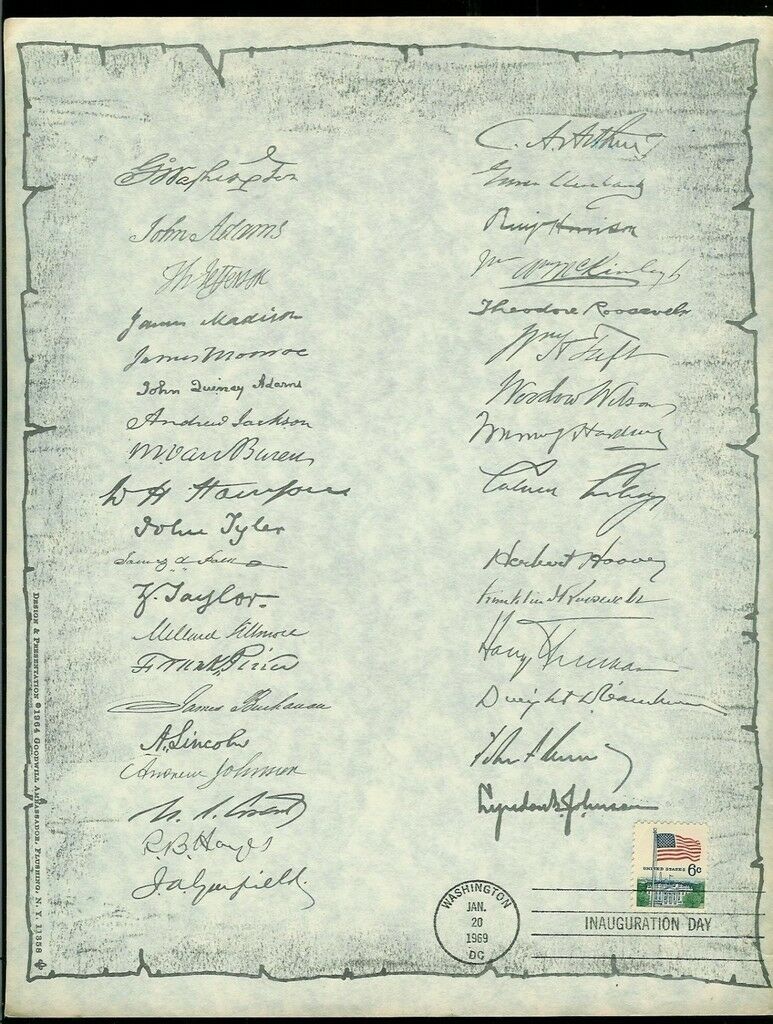 G Washington
John Adams
Th Jefferson
James Madison
James Monroe
John Quincy Adams
Andrew Jackson
M Van Buren
W H Harrison
John Tyler
James K Polk
Z. Taylor.
Millard Fillmore
Franklin Pierce
James Buchanan
A. Lincoln
Andrew Johnson
U. S. Grant
R. B. Hayes
J. A. Garfield.
C. A. Arthur
Grover Cleveland
Benj Harrison
Wm McKinley
Theodore Roosevelt
Wm H Taft
Woodrow Wilson
Warren G Harding
Calvin Coolidge
Herbert Hoover
Franklin D Roosevelt
Harry Truman
Dwight D Eisenhower
John F Kennedy
Lyndon B. Johnson
UNITED STATES 6c
WASHINGTON
JAN.
20
1969
DC
INAUGURATION DAY
DESIGN & PRESENTATION © 1964 GOODWILL AMBASSADOR, FLUSHING, N. Y. 11358